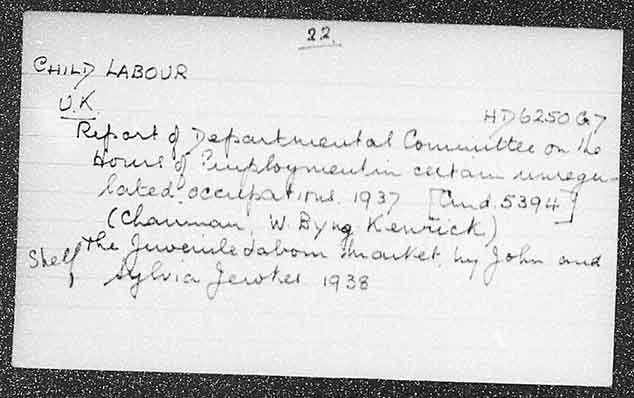 22.
CHILD LABOUR
U.K.
HD6250 G7
Report of Departmental Committee on the
Hours of Employment in certain unregu-
lated occupations. 1937 [Cmd. 5394]
(Chairman, W. Byng Kenrick)
Shelf The Juvenile Labour Market, by John and
Sylvia Jewkes 1938